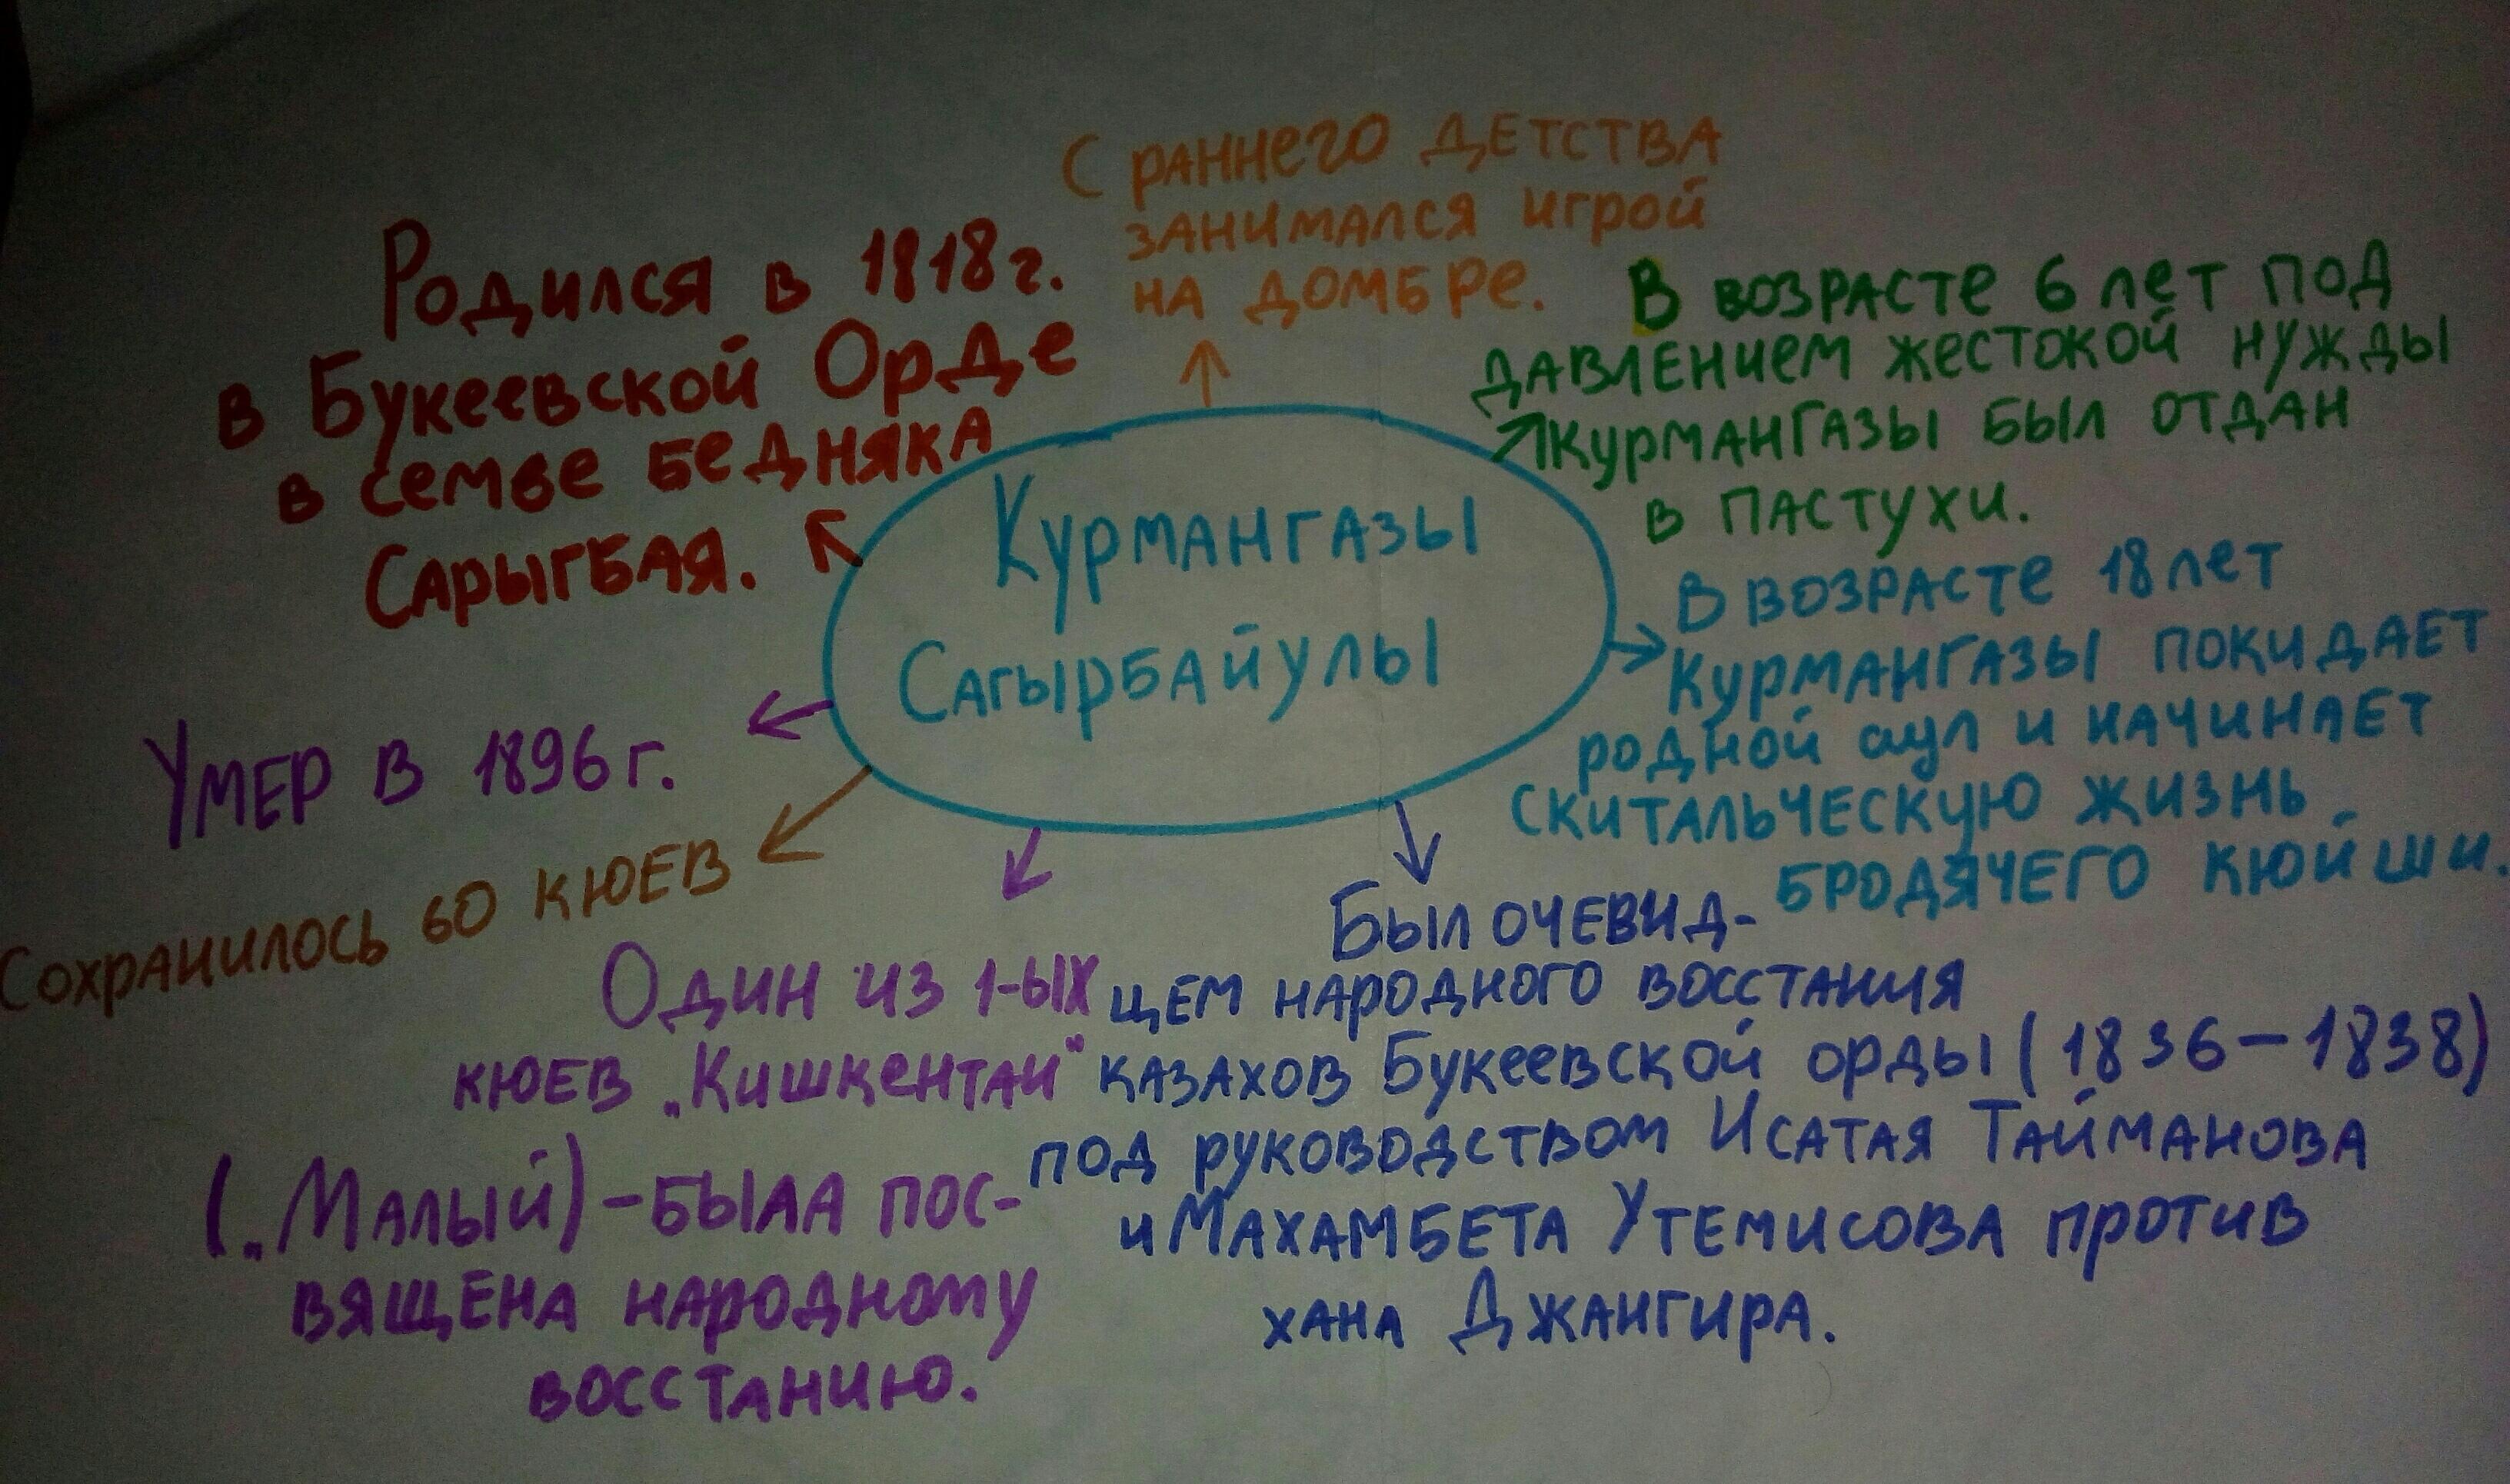 Курмангазы
Сагырбайулы
С раннего детства
занимался игрой
на домбре.
В возрасте 6 лет под
давлением жестокой нужды
Курмангазы был отдан
в пастухи.
В возрасте 18 лет
Курмангазы покидает
родной аул и начинает
скитальческую жизнь
бродячего кюйши.
Был очевид-
цем народного восстания
казахов Букеевской орды (1836-1838)
под руководством Исатая Тайманова
и Махамбета Утемисова против
хана Джангира.
Один из 1-ых
кюев „Кишкентай"
(„Малый) - быаа пос-
вящена народному
восстанию.
Сохранилось 60 кюев
Умер в 1896 г.
Родился в 1818 г.
в Букеевской Орде
в семье бедняка
Сарыгбая.